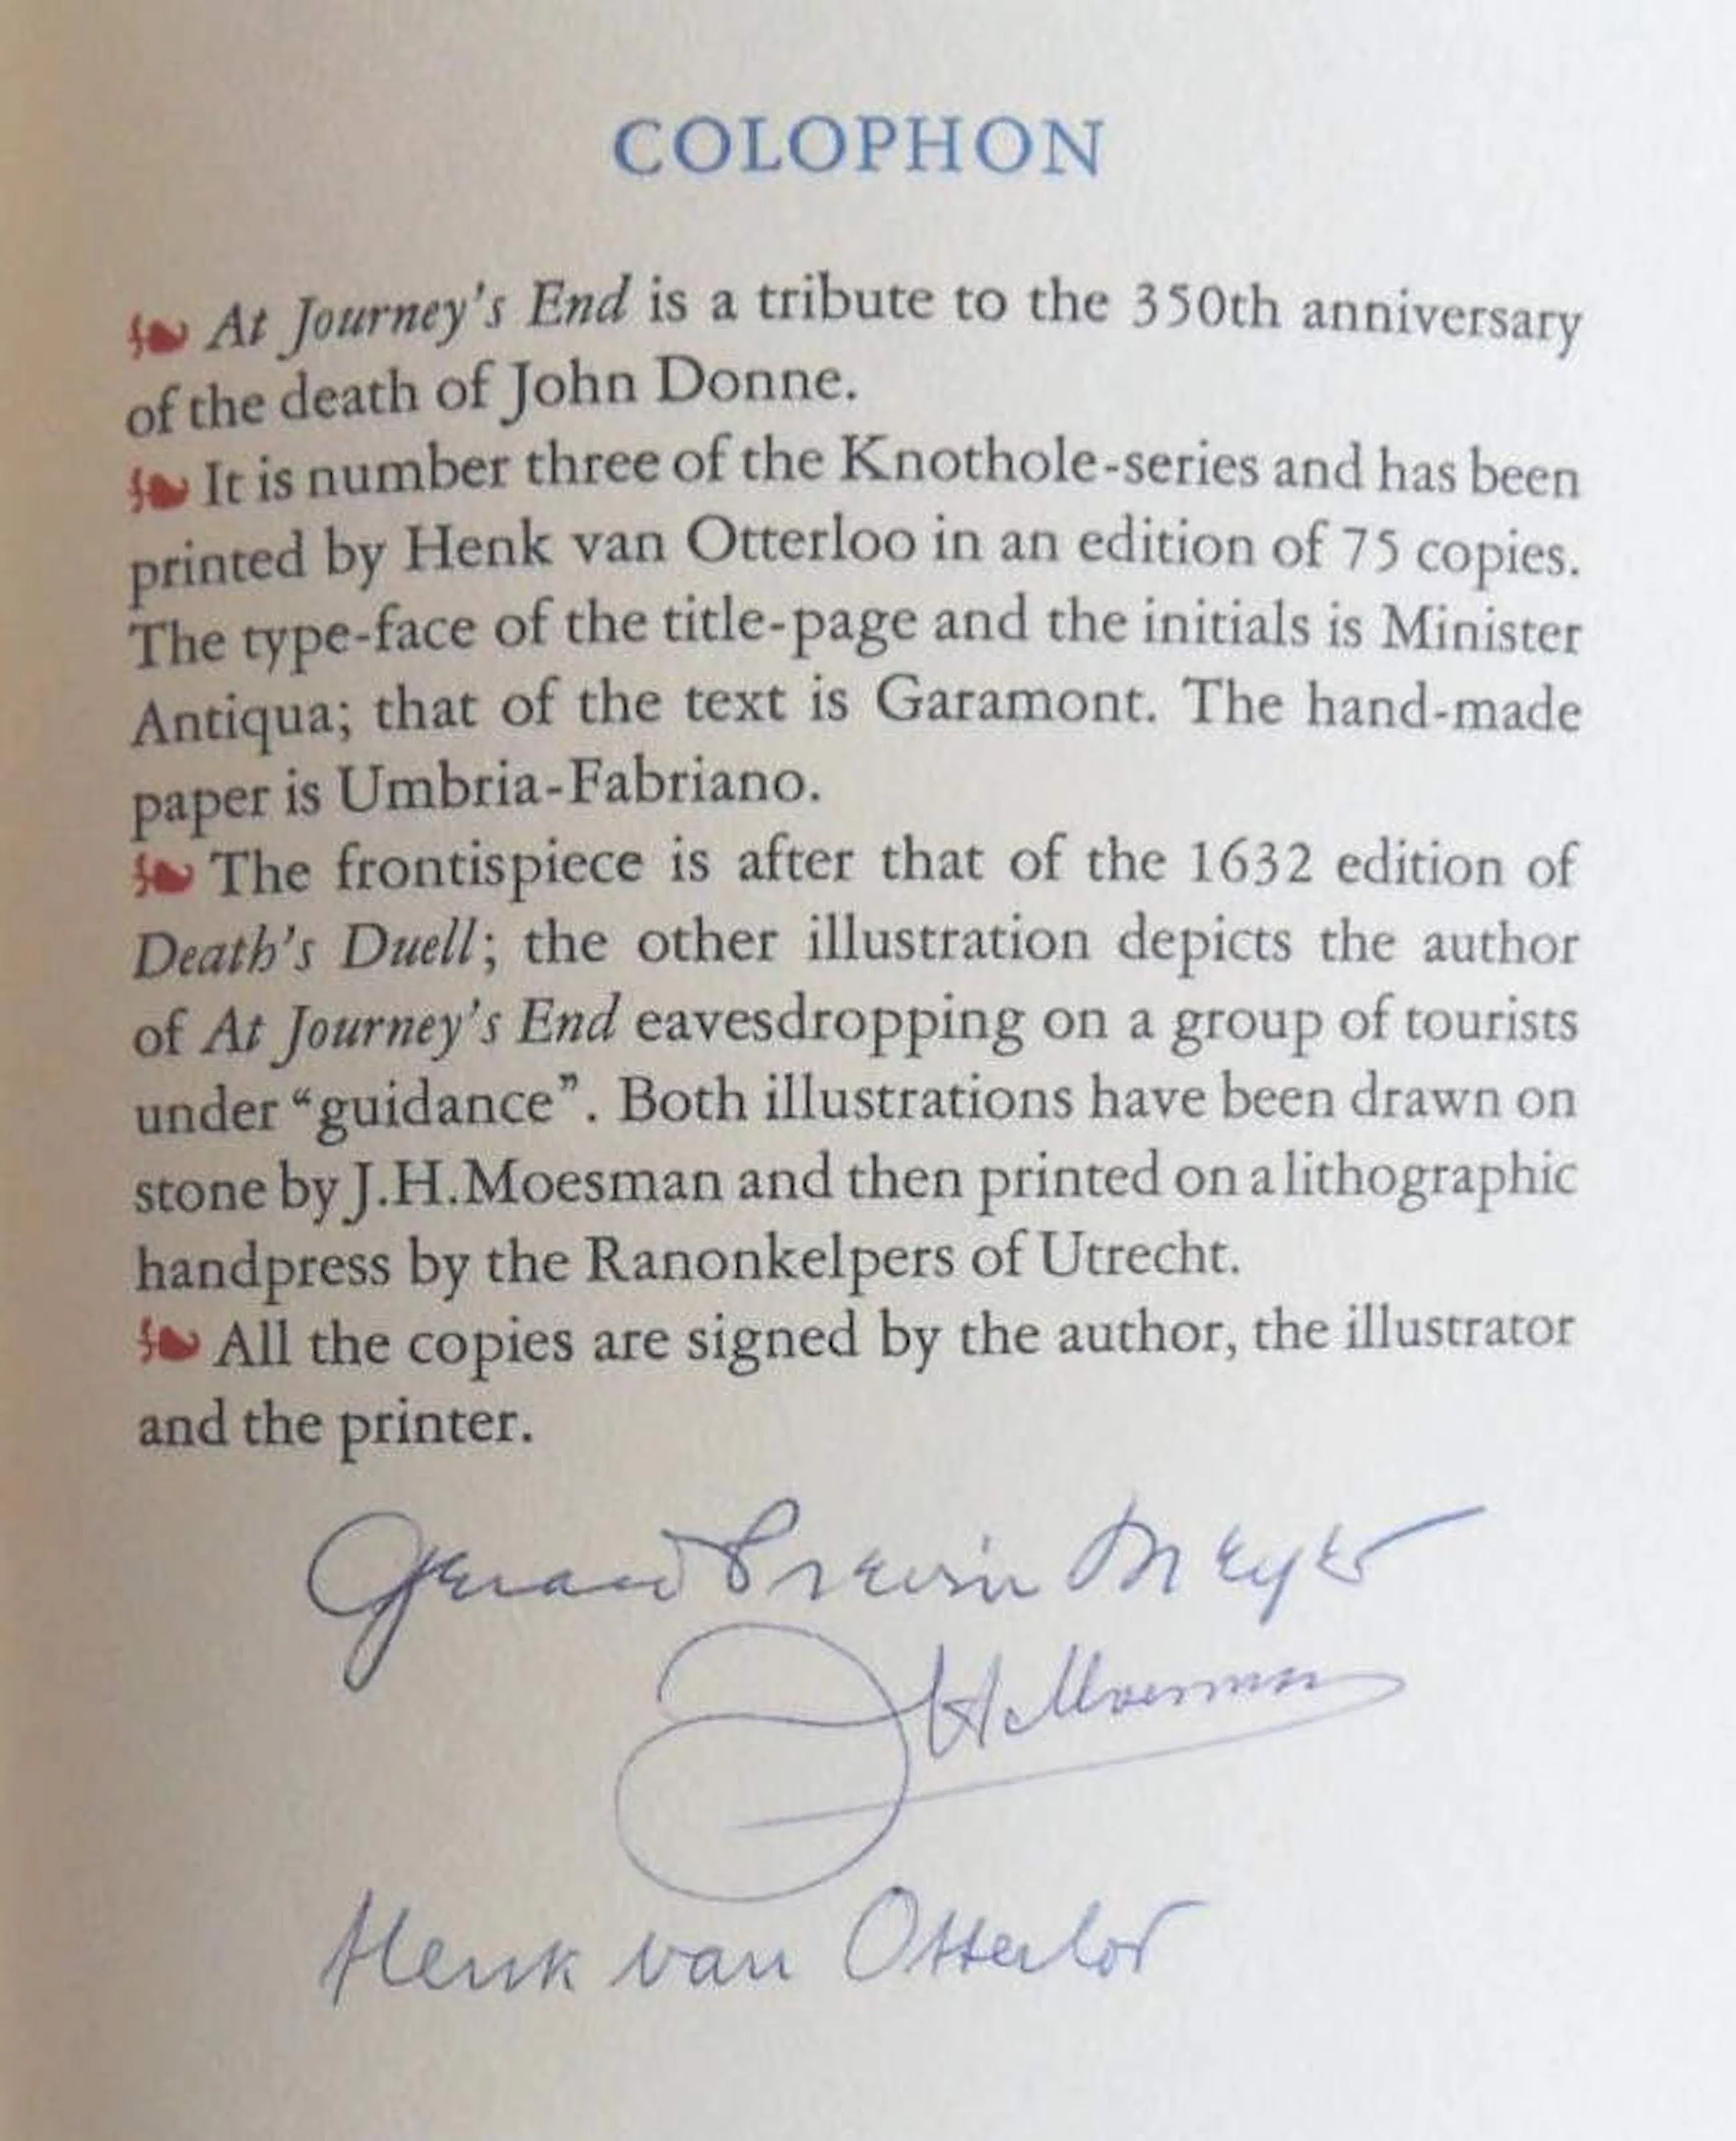 COLOPHON
At Journey's End is a tribute to the 350th anniversary
of the death of John Donne.
It is number three of the Knothole-series and has been
printed by Henk van Otterloo in an edition of 75 copies.
The type-face of the title-page and the initials is Minister
Antiqua; that of the text is Garamont. The hand-made
paper is Umbria-Fabriano.
The frontispiece is after that of the 1632 edition of
Death's Duell; the other illustration depicts the author
of At Journey's End eavesdropping on a group of tourists
under “guidance”. Both illustrations have been drawn on
stone by J.H.Moesman and then printed on a lithographic
handpress by the Ranonkelpers of Utrecht.
All the copies are signed by the author, the illustrator
and the printer.
Gerard Previn Meyer
JH Moesman
Henk van Otterloo